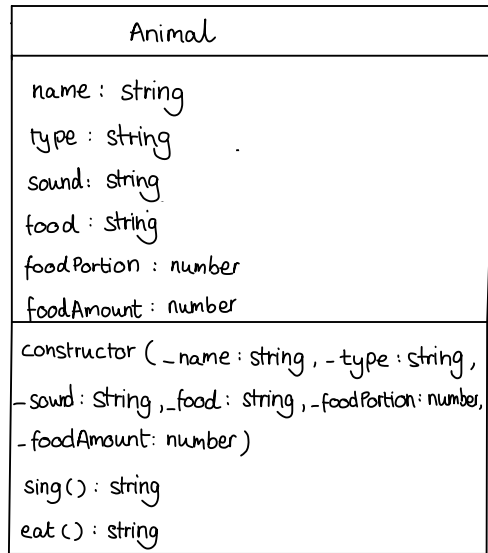 Animal
name : string
type : string
sound: string
food : string
foodPortion : number
foodAmount : number
constructor ( _name : string , _type : string ,
_sound : string , _food : string , _foodPortion : number,
_foodAmount: number )
sing() : string
eat () : string